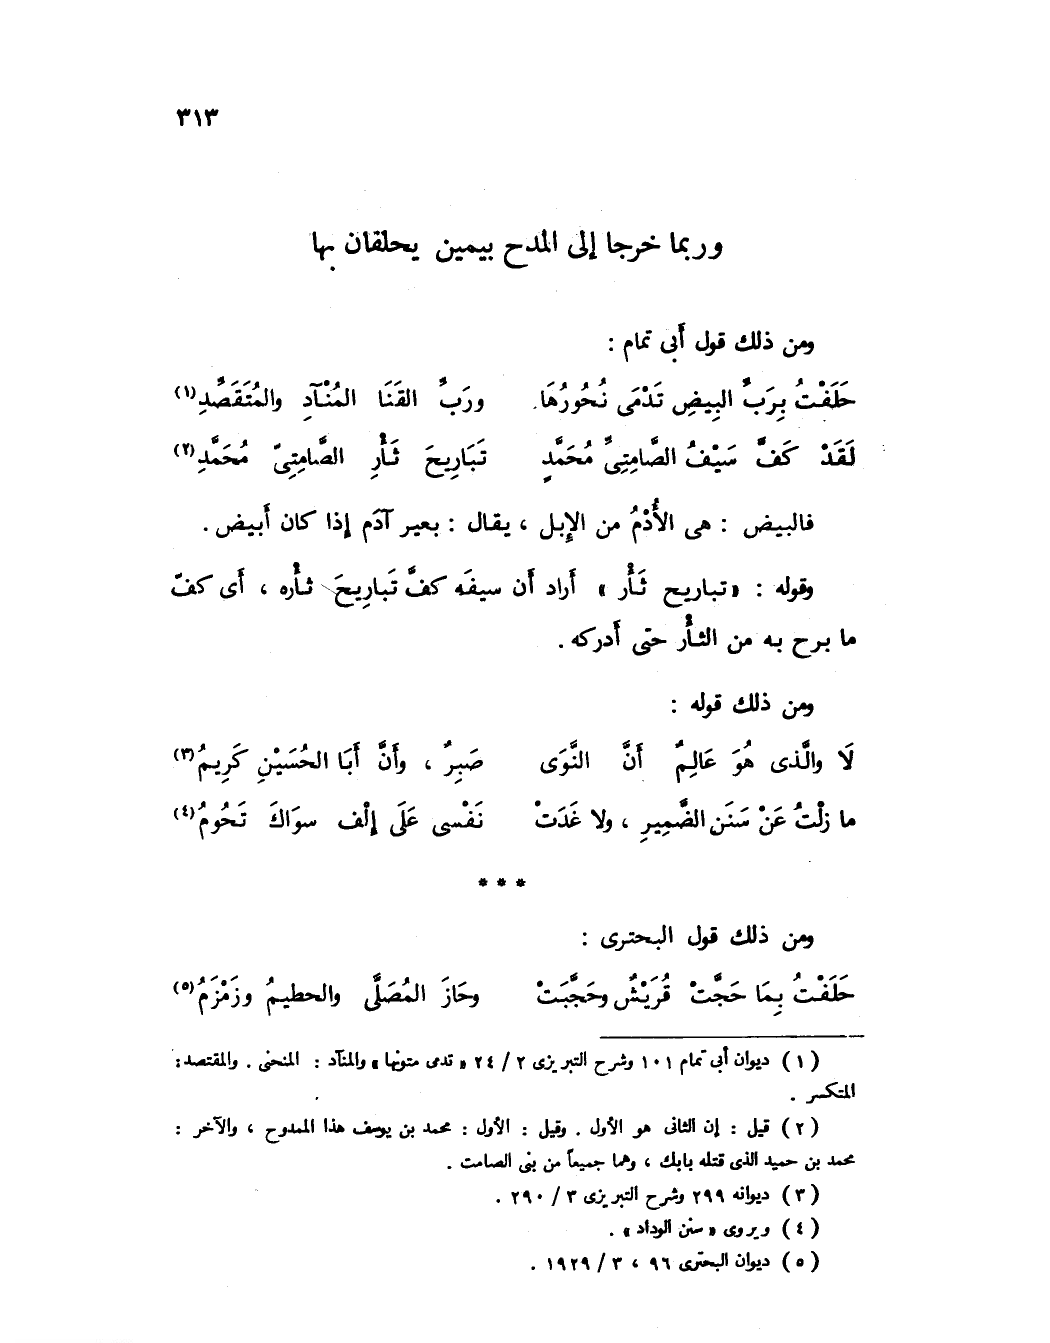 ٣١٣
وربما خرجا إلى المدح بيمين يحلقان بها
ومن ذلك قول أبى تمام :
حَلَفْتُ بِرَبِّ البِيضِ تَدْمَى نُحُورُهَا ورَبِّ القَنَا المُنْآدِ والمُتَقَصِّدِ(١)
لَقَدْ كَفَّ سَيْفُ الصَّامِتِىِّ مُحَمَّدٍ تَبَارِيحَ ثَأْرِ الصَّامِتِىِّ مُحَمَّدِ(٢)
فالبيض : هى الأُدْمُ من الإبل ، يقال : بعير آدَم إذا كان أبيض .
وقوله : « تباريح ثَأْر » أراد أن سيفَه كفَّ تَبارِيحَ ثأْره ، أى كفّ
ما برح به من الثأر حتى أدركه .
ومن ذلك قوله :
لَا والَّذى هُوَ عَالِمٌ أنَّ النَّوَى صَبِرٌ ، وأَنَّ أبَا الحُسَيْنِ كَرِيمُ(٣)
ما زلْتُ عَنْ سَنَنِ الضَّمِيرِ ، ولا غَدَتْ نَفْسى عَلَى إلْف سوَاكَ تَحُومُ(٤)
* * *
ومن ذلك قول البحترى :
حَلَفْتُ بِمَا حَجَّتْ قُرَيْشٌ وحَجَّبَتْ وحَازَ المُصَلَّى والحطيمُ وزَمْزَمُ(٥)
(١) ديوان أبى تمام ١٠١ وشرح التبريزى ٢ / ٢٤ « تدمى متونها » والمنآد : المنحنى . والمقتصد :
المتكسر .
(٢) قيل : إن الثانى هو الأول . وقيل : الأول : محمد بن يوسف هذا الممدوح ، والآخر :
محمد بن حميد الذى قتله بابك ، وهما جميعاً من بنى الصامت .
(٣) ديوانه ٢٩٩ وشرح التبريزى ٣ / ٢٩٠ .
(٤) ويروى « سنن الوداد » .
(٥) ديوان البحترى ٩٦ ، ٣ / ١٩٢٩ .